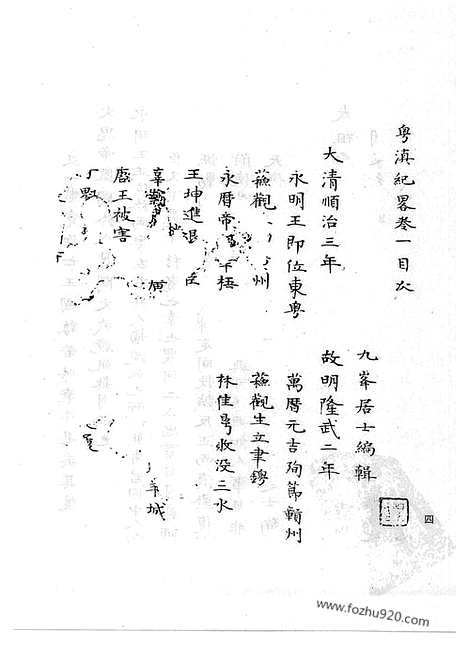 粵滇紀畧卷一目次
九峯居士編輯
大清順治三年
故明隆武二年
永明王即位東粵
萬曆元吉殉節贛州
蘇觀 州
蘇觀生立聿鐭
永曆帝 梧
林佳鼎收没三水
王坤進退
辜
羊城
唐王被害
四
www.fozhu920.com